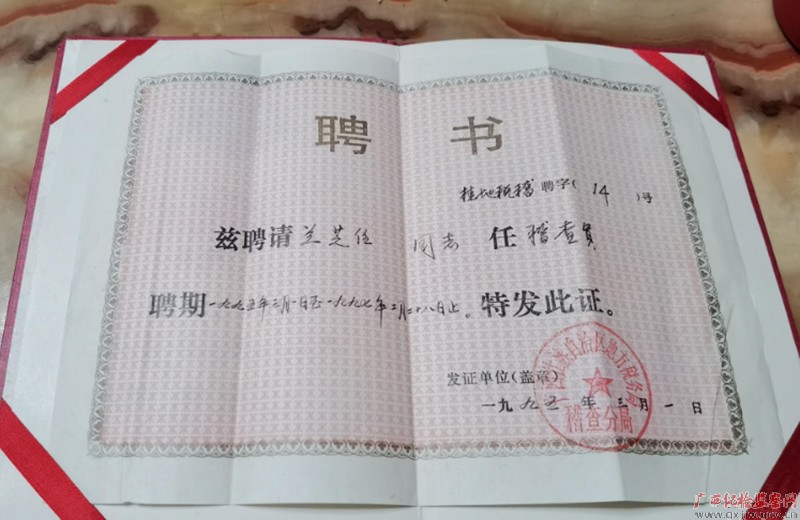 聘 书
桂地税稽 聘字(14)号
兹聘请兰芝任 同志 任 稽查员
聘期一九九五年三月一日至一九九七年二月二十八日止。特发此证。
发证单位(盖章)
一九九五年三月一日
自治区地方税务局
稽查分局
广西纪检监察网
www.gxjjw.gov.cn